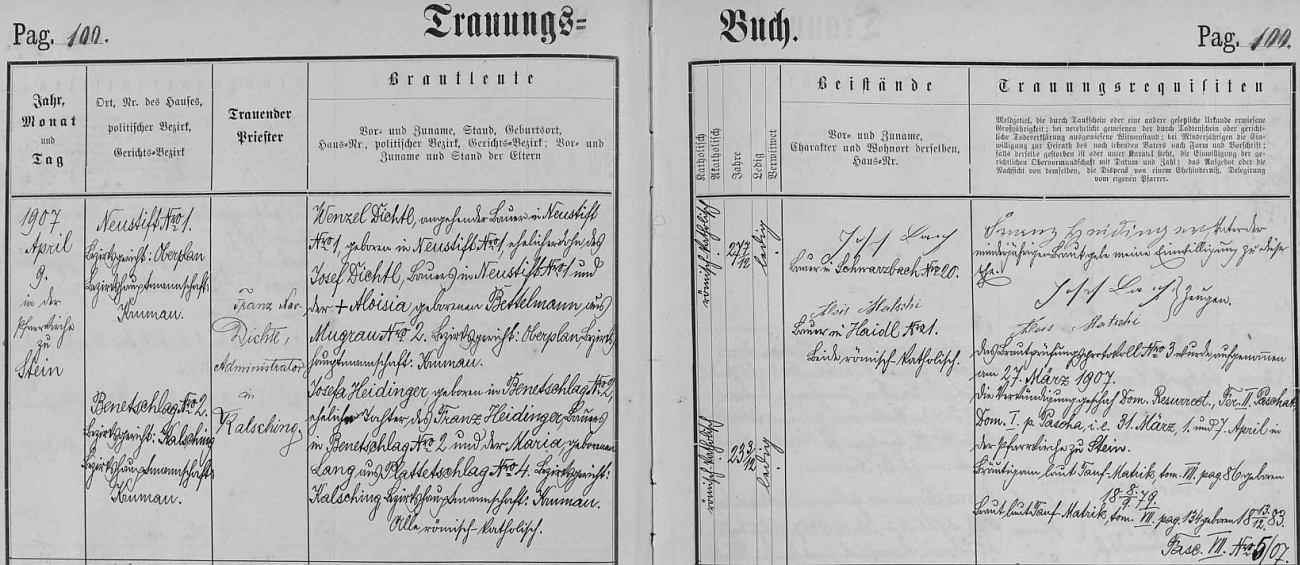 Pag. 100.
Trauungs=
Buch.
Pag. 100.
Jahr,
Monat
und
Tag
Ort, Nr. des Hauses,
politischer Bezirk,
Gerichts-Bezirk
Trauender
Priester
Brautleute
Vor- und Zuname, Stand, Geburtsort,
Haus-Nr., politischer Bezirk, Gerichts-Bezirk; Vor- und
Zuname und Stand der Eltern
Katholisch
Akatholisch
Jahre
Ledig
Verwitwet
Beistände
Vor- und Zuname,
Charakter und Wohnort derselben,
Haus-Nr.
Trauungsrequisiten
Meldzettel, die durch Taufschein oder eine andere gesetzliche Urkunde erwiesene
Großjährigkeit; bei verehelicht gewesenen der durch Todtenschein oder gericht-
liche Todeserklärung ausgewiesene Witwenstand; bei Minderjährigen die Ein-
willigung zur Heirath des noch lebenden Vaters nach Form und Vorschrift;
falls derselbe gestorben ist oder unter Kuratel steht, die Einwilligung der ge-
richtlichen Obervormundschaft mit Datum und Zahl; das Aufgebot oder die
Nachsicht von demselben, die Dispens von einem Ehehinderniß, Delegirung
vom eigenen Pfarrer.
1907
April
9.
in der
Pfarrkirche
zu
Stein
Neustift Nro 1.
Bezirksgericht: Oberplan
Bezirkshauptmannschaft:
Krumau.
Benetschlag Nro 2.
Bezirksgericht: Kalsching
Bezirkshauptmannschaft:
Krumau.
Franz Xav.
Dichtl,
Administrator
in
Kalsching,
Wenzel Dichtl, angehender Bauer in Neustift
Nro 1, geboren in Neustift Nro 1 ehelicher Sohn des
Josef Dichtl, Bauers in Neustift Nro 1 und
der + Aloisia, geborenen Bettelmann aus
Mugrau Nro 2. Bezirksgericht: Oberplan Bezirks
hauptmannschaft: Krumau.
Josefa Heidinger, geboren in Benetschlag Nro 2,
eheliche Tochter des Franz Heidinger, Bauers
in Benetschlag Nro 2 und der Maria, geborenen
Lang aus Plattetschlag Nro 4. Bezirksgericht:
Kalsching Bezirkshauptmannschaft: Krumau.
Alle römisch-katholisch.
römisch-katholisch
27 7/12
ledig
römisch-katholisch
23 3/12
ledig
Josef
Bauer in Schwarzbach Nro 20.
Alois Matschi
Bauer in Haidl Nro 1.
Beide römisch-katholisch.
Franz Heidinger Vater der
minderjährigen Braut gebe meine Einwilligung zu dieser
Ehe.
Josef Zeugen.
Alois Matschi
Das Brautprüfungsprotokoll Nro 3 wurde aufgenommen
am 27. März 1907.
Die Verkündigung geschah Dom. Resurrect., Fer. II. Paschat.
Dom. I. p. Pascha, i. e. 31. März, 1. und 7. April in
der Pfarrkirche zu Stein.
Bräutigam laut Tauf-Matrik, tom. VII. pag 86 geboren
18 8./9. 79.
Braut, laut Tauf-Matrik, tom. VII. pag. 134 geboren 18 13./12. 83.
Fasc. VII. Nro 5/07.